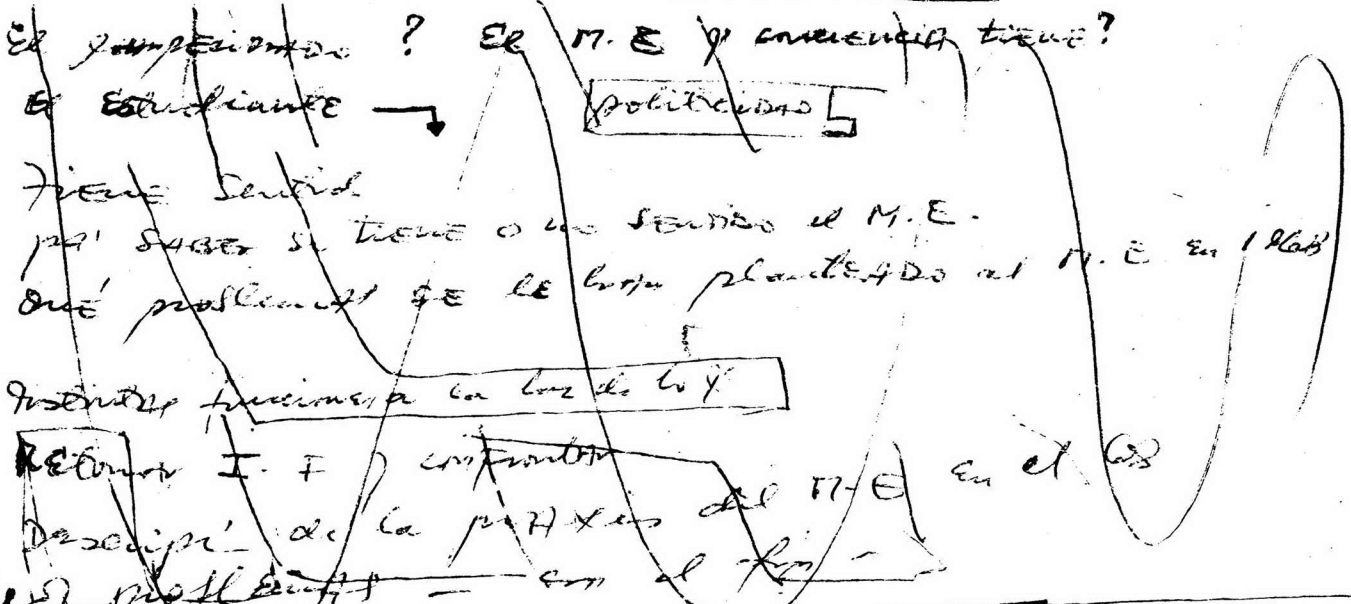 El ? El M.E y conciencia tiene?
El Estudiante politicidad
tiene sentid
pa' SABER si tiene o no SENTIDO el M.E.
QuÉ problemas SE le han planteado al M.E en 1968
funciones a la luz de lo y
REtomar I. F y confrontar
Descripi de la prAxis del M-E en el 68
problemas - con el fin